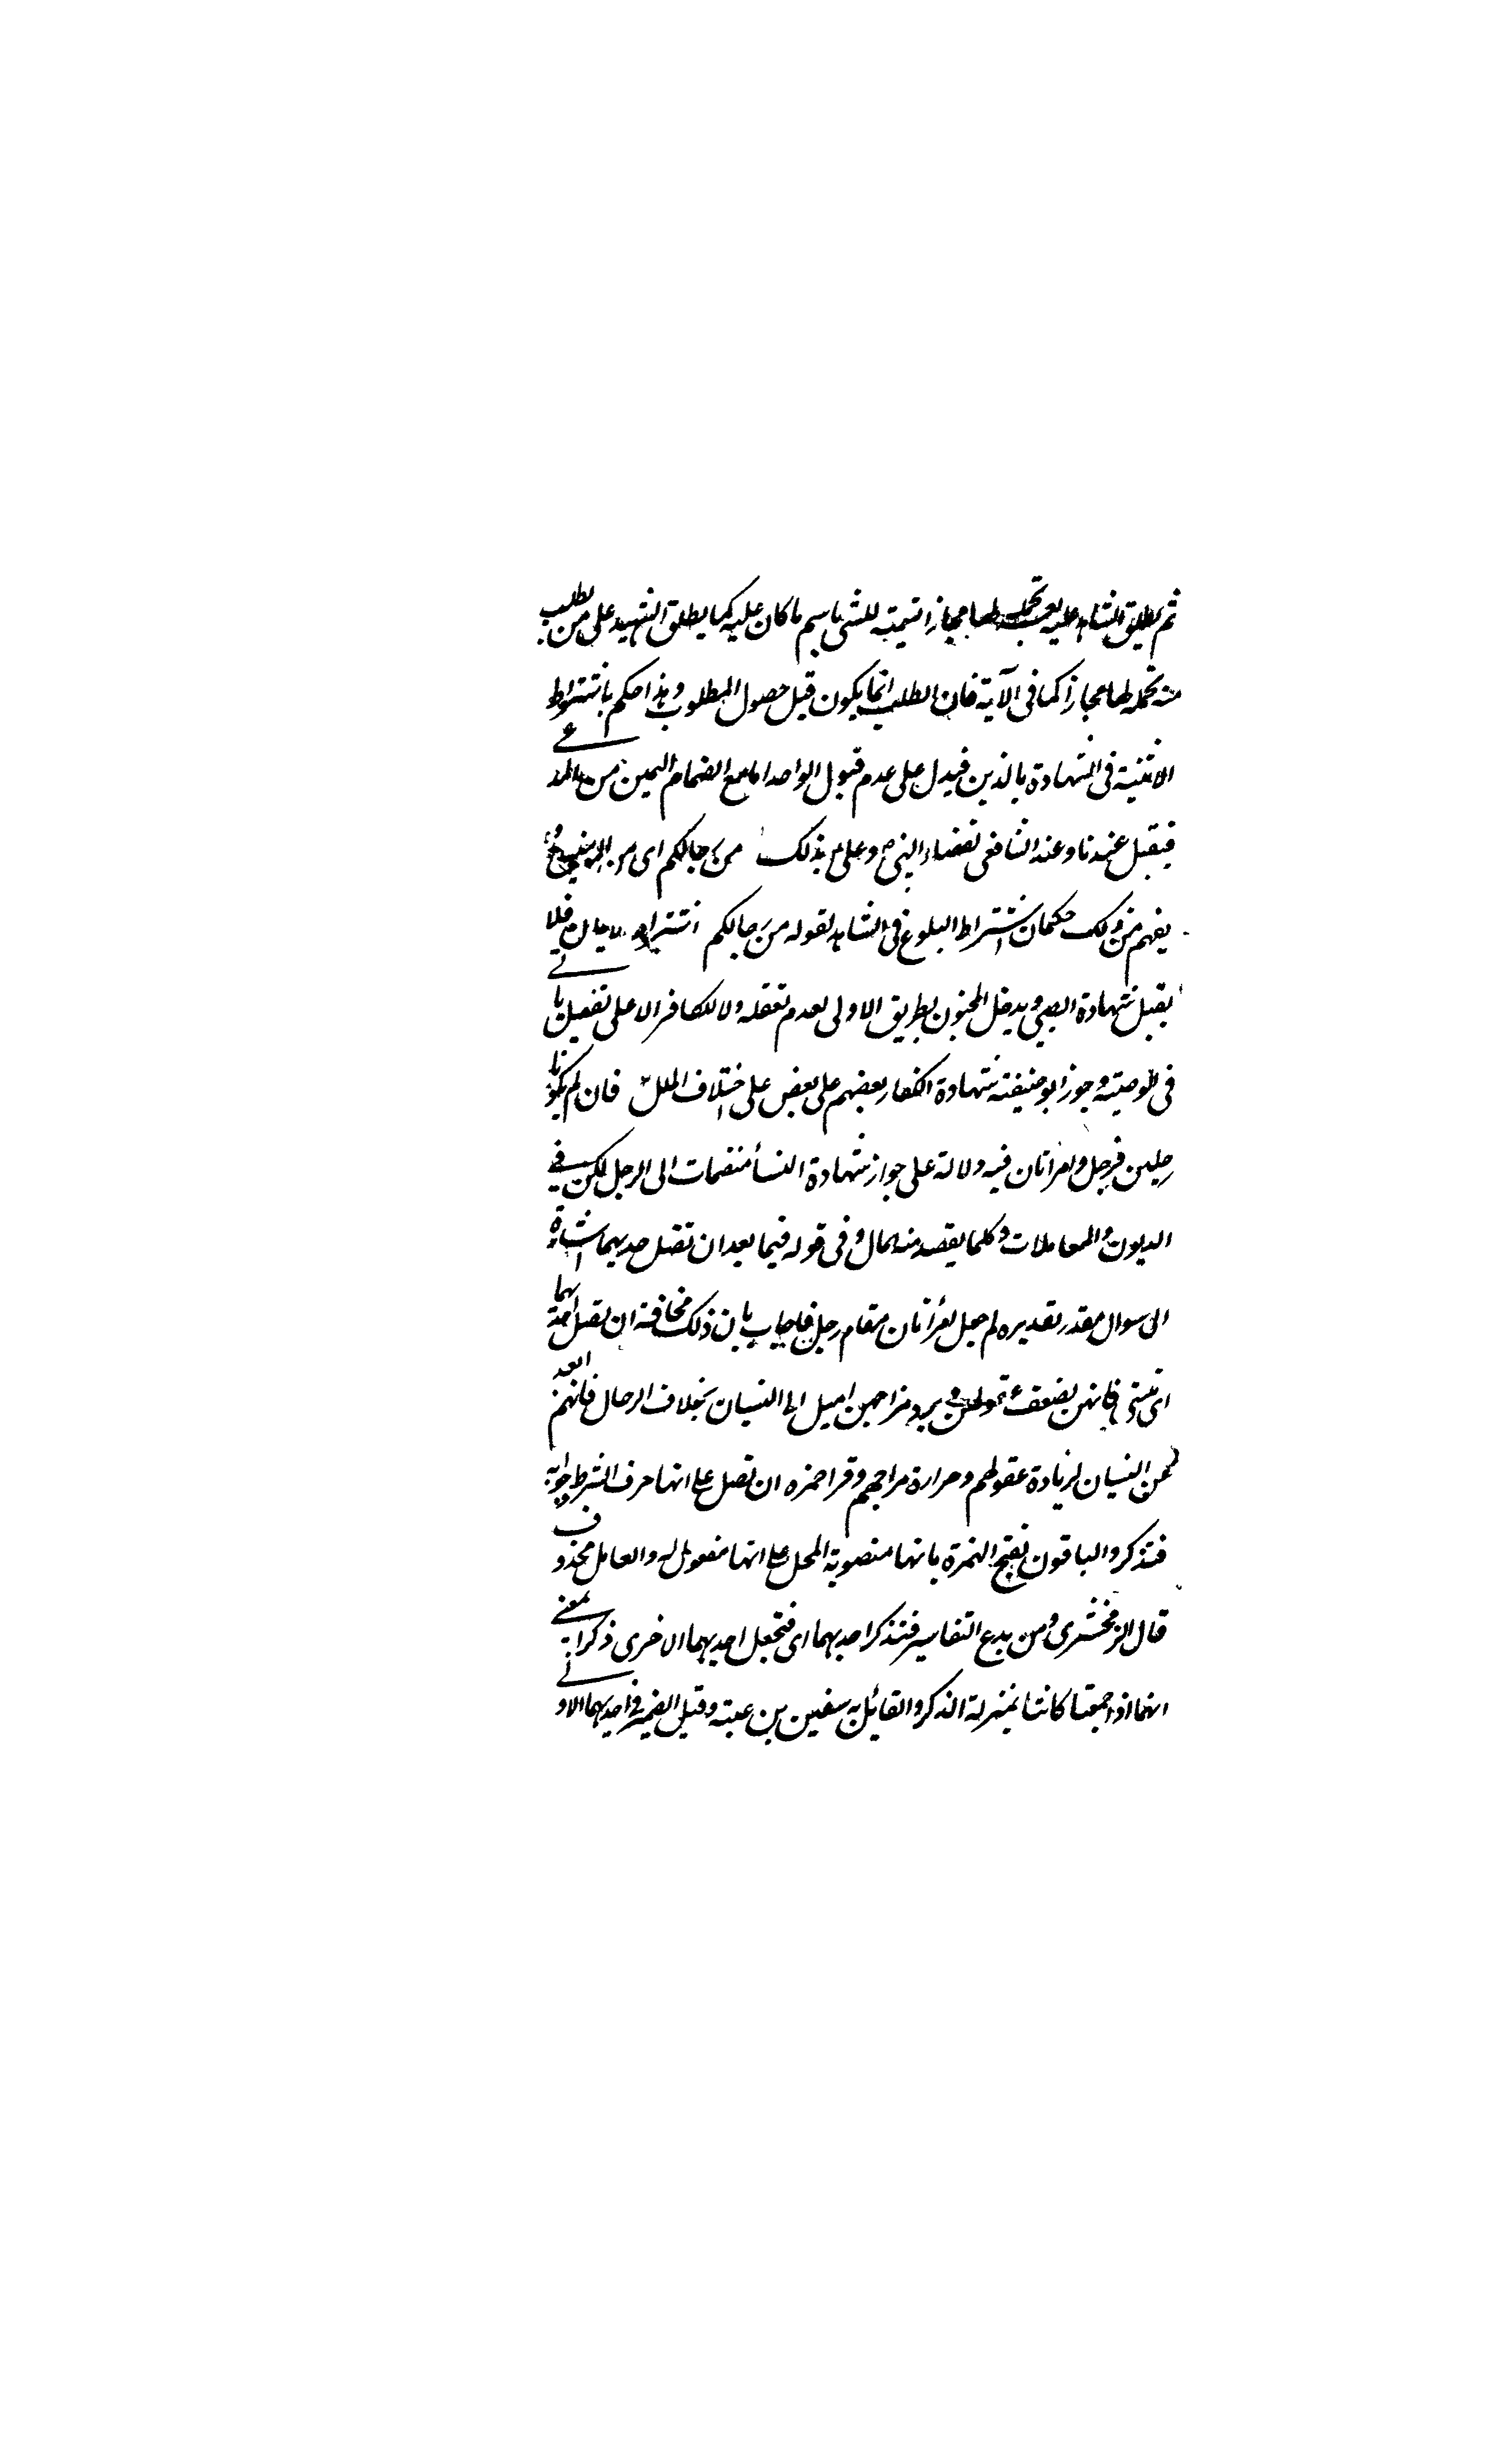 ثم يطلق الشاهد عليه بعد تحمله لها مجازا تسمية للشی باسم ما كان عليه كما يطلق الشهيد على من يطلب
منه تحمله لها مجازا كما فی الآية فان الطلب انما يكون قبل حصول المطلوب وهذا حكم باشتراط
الاثنينية فی الشهادة بالدين فيدل على عدم قبول الواحد اما مع انضمام اليمين من المدعی
فيقبل عندنا وعند الشافعی لقضاء النبی ص وعلی ع بذلك من رجالكم ای من المؤمنين
يفهم من ذلك حكمان اشتراط البلوغ فی الشاهد لقوله من رجالكم اشتراط الايمان فلا
يقبل شهادة الصبی ويدخل المجنون بطريق الاولی لعدم تعقله ولا للكافر الا على تفصيل يأتی
فی الوصية وجوز ابو حنيفة شهادة الكفار بعضهم على بعض على اختلاف الملل فان لم يكونا
رجلين فرجل وامراتان فيه دلالة على جواز شهادة النسأ منضمات الى الرجل لكن فی
الديون والمعاملات وكلما يقصد منه المال وفی قوله فيما بعد ان تضل احديهما اشارة
الى سوال مقدر تقديره لم جعل امرأتان مقام رجل فاجاب بان ذلك مخافة ان تضل احديهما
ای تنسی فانهن لضعف عقولهن وبرد مزاجهن اميل الى النسيان بخلاف الرجال فانهم ابعد
من النسيان لزيادة عقولهم وحرارة مزاجهم وقرا حمزه ان تضل على انها حرف الشرط جوابه
فتذكر والباقون بفتح الهمزة بانها منصوبة المحل على انها مفعول له والعامل محذوف
قال الزمخشری ومن بدع التفاسير فتذكر احديهما ای فتجعل احديهما الاخری ذكرا بمعنى
انهما اذا اجمعتا كانتا بمنزلة الذكر والقائل به سفين بن عيينة وقيل الضمير فی احديهما الاولی